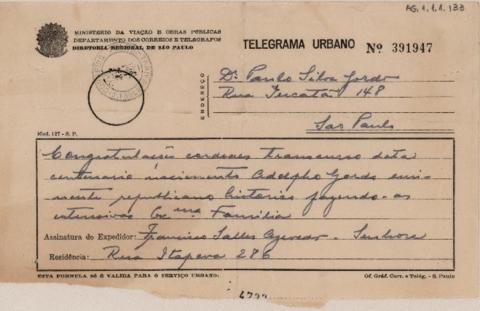 AG.1.1.1.133
MINISTERIO DA VIAÇÃO E OBRAS PÚBLICAS
DEPARTAMENTO DOS CORREIOS E TELÉGRAFOS
DIRETORIA REGIONAL DE SÃO PAULO
TELEGRAMA URBANO Nº 391947
ENDEREÇO
Dr. Paulo Silva Gordo
Rua 148
São Paulo
Mod. 127 - S. P.
Congratulações cordeaes transcurso data
centenario nascimento Adolpho Gordo emi
nente republicano historico fazendo-as
extensivas Exma. Familia
Assinatura do Expedidor: Francisco Salles Azevedo - Senhora
Residência: Rua Itapeva 286
ESTA FORMULA SÓ É VALIDA PARA O SERVIÇO URBANO:
Of. Gráf. Corr. e Telég. - S. Paulo